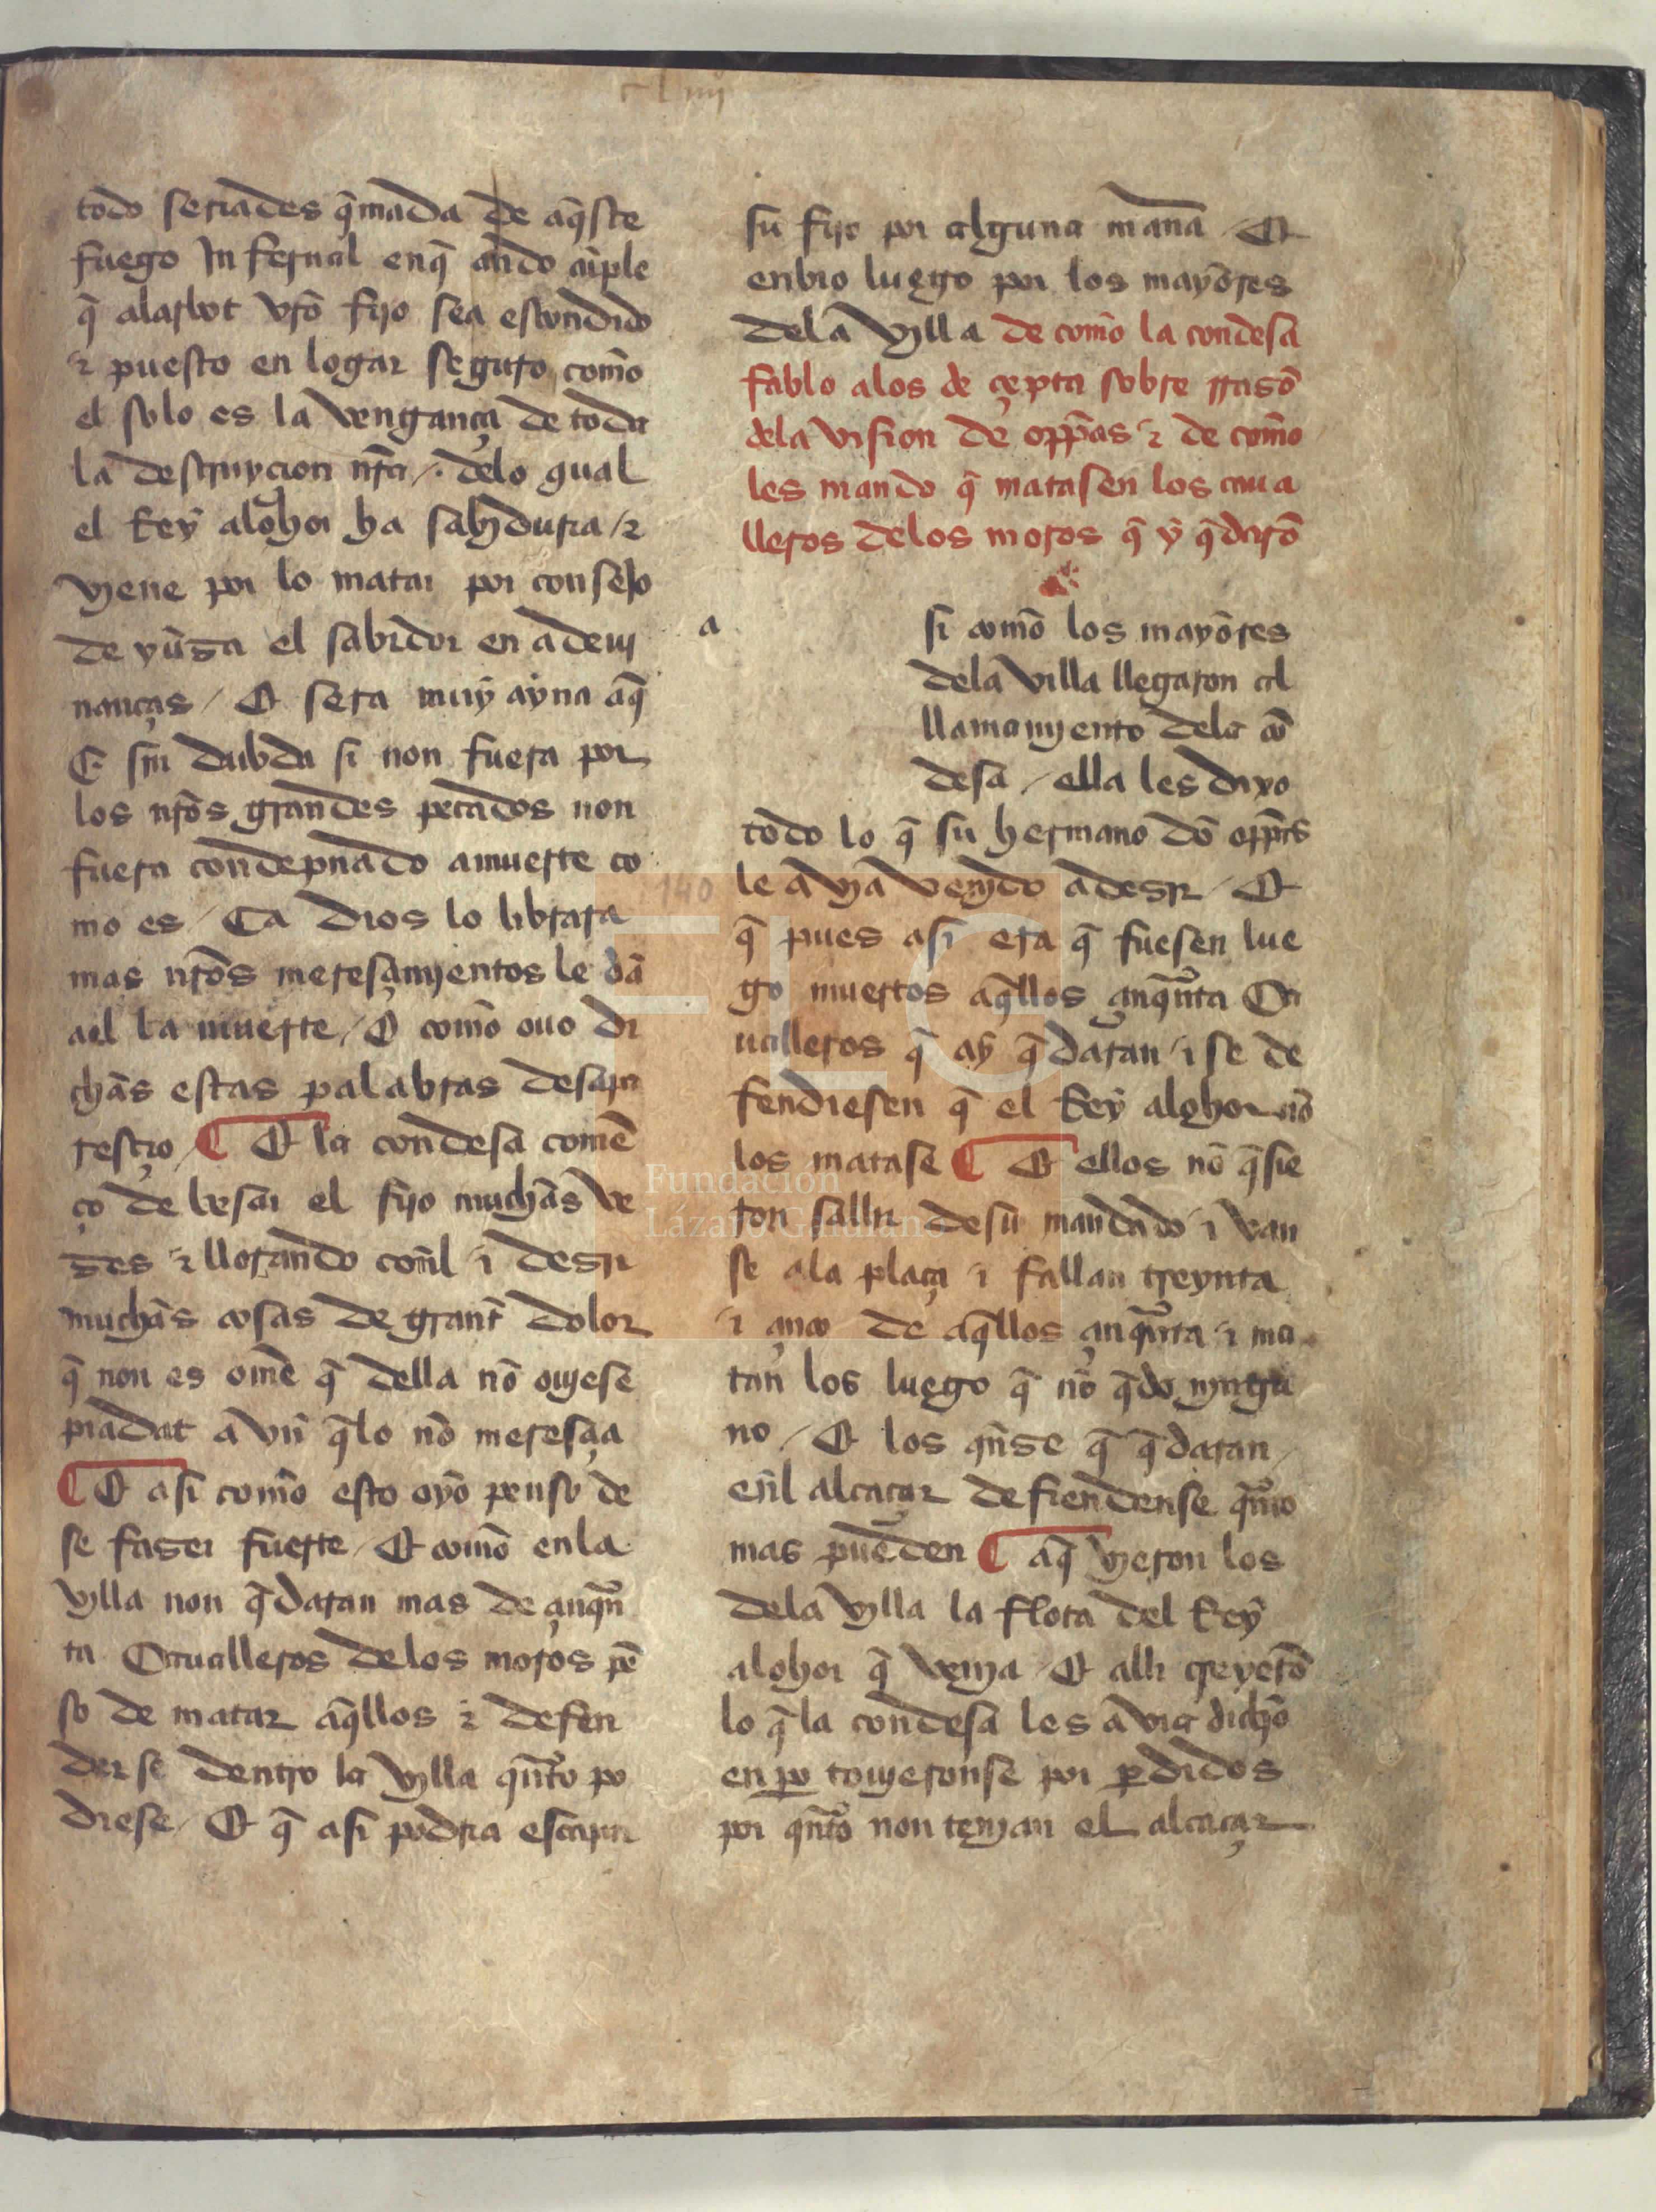 c l iiij
todo seriades q̃mada de aq̃ste
fuego Infernal enq̃ ando cũple
q̃ alarbot vr̃o fijo sea escondido
⁊ puesto en logar seguro como
el solo es la vengança de toda
la destruycion nr̃a /. delo qual
el Rey alohor ha sabyduria / ⁊
vyene por lo matar por consejo
de yũsa el sabidor en adeui
nanças / Et sera muy ayna aq̃
E sin dubda si non fuera por
los nr̃os grandes pecados non
fuera condepnado amuerte co
mo es / Ca dios lo librara
mas nr̃os meresçimyentos le dã
ael la muerte / E como ouo di
chas estas palabras desapa
resçio / Et la condesa comẽ
ço de besar el fijo muchas ve
ses ⁊ llorando coñl ⁊ desir
muchas cosas de grant dolor
q̃ non es ome q̃ della nõ ouyese
piadat avn q̃lo nõ meresçia
E asi como esto oyo penso de
se faser fuerte / Et como enla
vylla non q̃daran mas de çinqũ
ta Caualleros delos moros pẽ
so de matar aq̃llos ⁊ defen
derse dentro la vylla qñto po
diese / Et q̃ asi podria escapar
su fijo por alguna manã / Et
enbio luego por los mayores
dela vylla de como la condesa
fablo alos de çepta sobre rrasõ
dela vision de opp̃as ⁊ de como
les mando q̃ matasen los caua
lleros delos moros q̃ y q̃darõ
a
si como los mayores
dela villa llegaron al
llamamyento dela cõ
desa / ella les dixo
todo lo q̃ su hermano dõ opp̃as
le avya venydo adesir / Et
q̃ pues asi era q̃ fuesen lue
go muertos aq̃llos çinqũta Ca
ualleros q̃ ay q̃daran ⁊ se de
fendiesen q̃ el Rey alohor nõ
los matase Et ellos nõ q̃sie
ron sallir desu mandado ⁊ van
se ala plaça ⁊ fallan treynta
⁊ çinco de aq̃llos çinqũta ⁊ ma
tan los luego q̃ nõ q̃do nyngu
no / Et los qñse q̃ q̃daran /
eñl alcaçar defiendense qũto
mas pueden aq̃ vyeron los
dela vylla la flota del Rey
alohor q̃ venya / Et alli creyerõ
lo q̃ la condesa les avia dicho
enpo touyeronse por perdidos
por qñto non tenyan el alcaçar
140
FLG
Fundación
Lázaro Galdiano